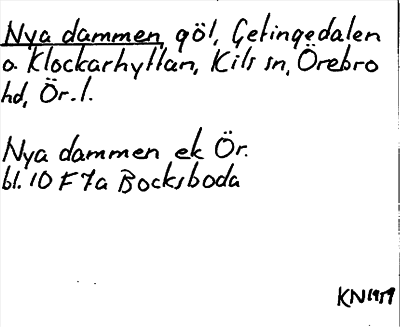 Nya dammen, göl, Getingedalen
o. Klockarhyttan, Kils sn, Örebro
hd, Ör. l.
Nya dammen ek Ör.
bl. 10 F 7a Bocksboda
KN 1959